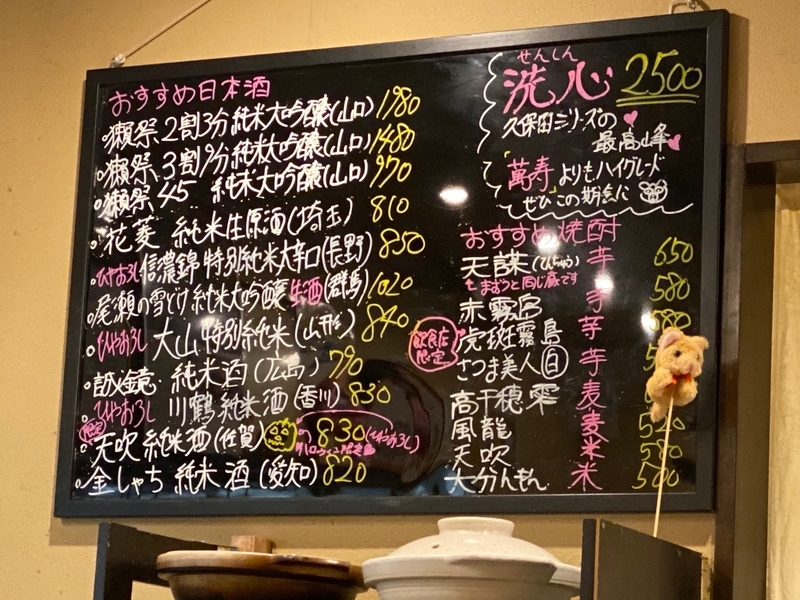 おすすめ日本酒
獺祭 2割3分 純米大吟醸(山口) 1980
獺祭 3割9分 純米大吟醸(山口) 1480
獺祭 45 純米大吟醸(山口) 970
花菱 純米生原酒(埼玉) 810
ひやおろし 信濃錦 特別純米大辛口(長野) 850
尾瀬の雪どけ 純米大吟醸 生酒(群馬) 1020
ひやおろし 大山 特別純米(山形) 840
誠鏡 純米酒(広島) 790
ひやおろし 川鶴 純米酒(香川) 830
限定 天吹 純米酒(佐賀) の 830(ひやおろし)
ハロウィン限定
金しゃち 純米酒(愛知) 820
せんしん
洗心 2500
久保田シリーズの
最高峰
「萬寿」よりもハイグレード
ぜひこの期会に
おすすめ焼酎
天謀(てんちゅう) 芋 650
たまおうと同じ蔵です
赤霧島 芋 580
飲食店限定 虎斑霧島 芋 580
さつま美人 白 芋
高千穂 零 麦
風龍 麦 520
天吹 米 580
大分んもん 米 500